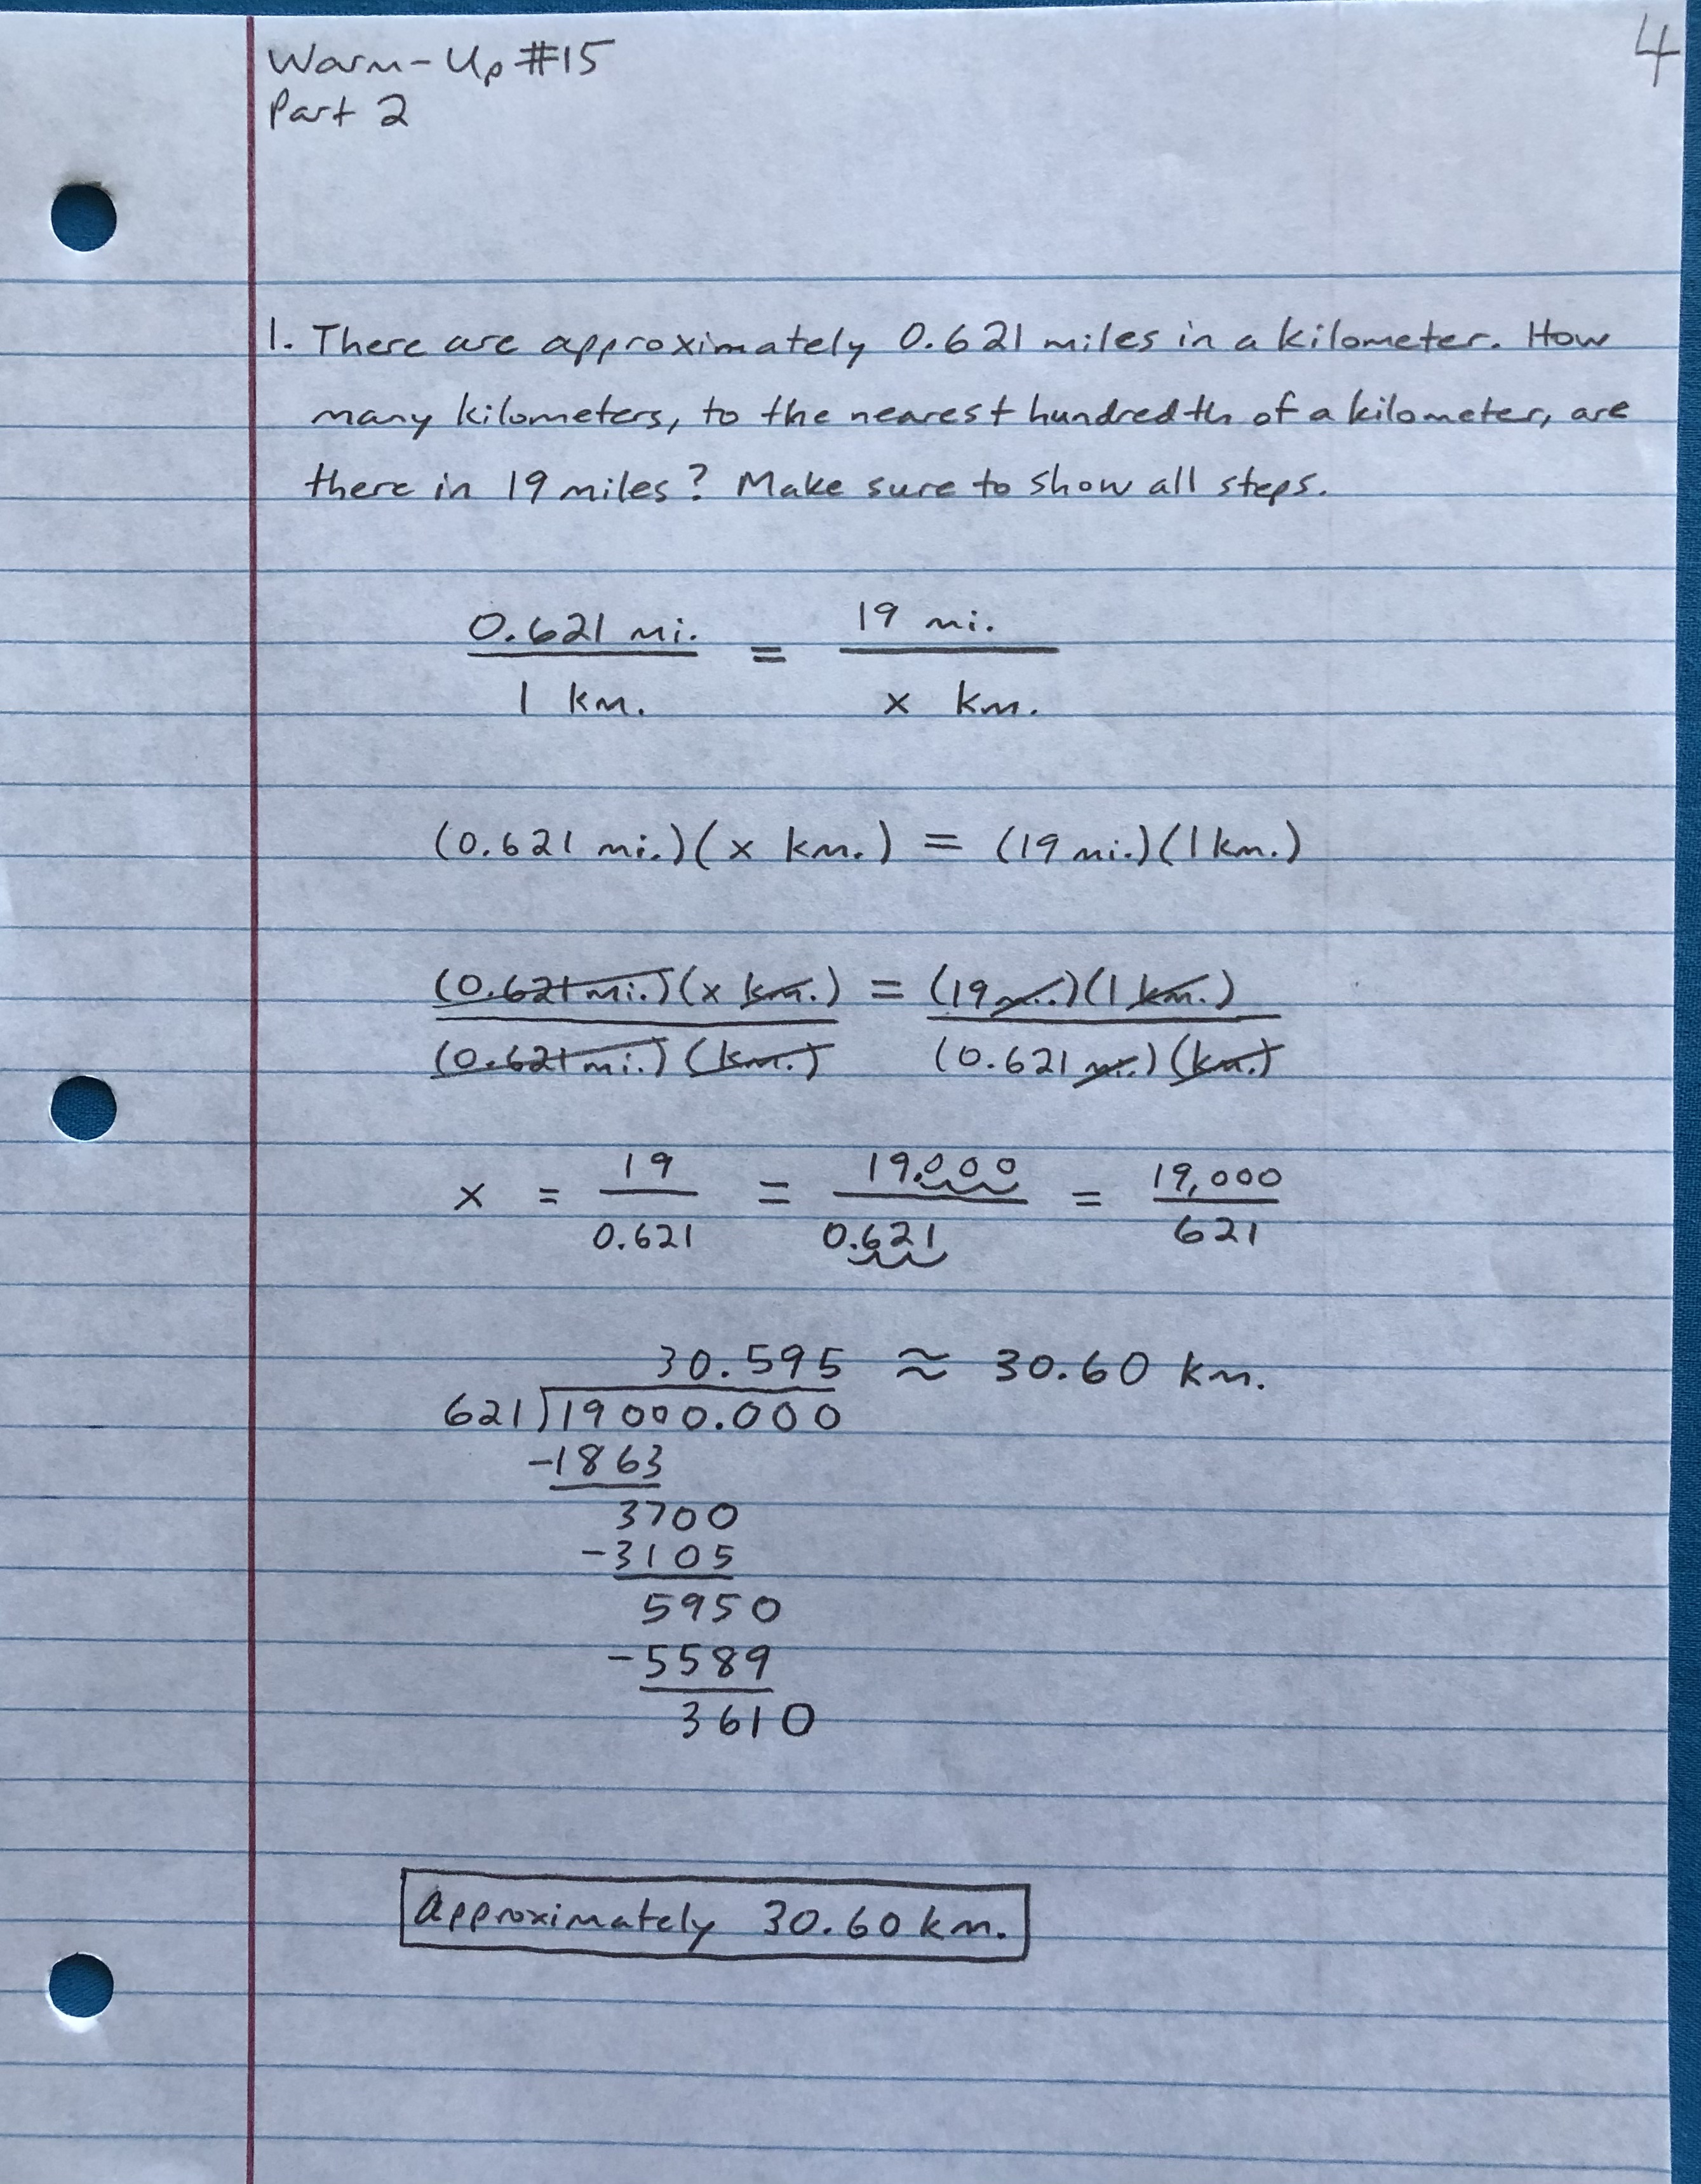 4
Warm-Up #15
Part 2
1. There are approximately 0.621 miles in a kilometer. How
many kilometers, to the nearest hundredth of a kilometer, are
there in 19 miles? Make sure to show all steps.
0.621 mi. = 19 mi.
1 km. x km.
(0.621 mi.)(x km.) = (19 mi.)(1 km.)
(0.621 mi.)(x km.) = (19 mi.)(1 km.)
(0.621 mi.)(km.) (0.621 mi.)(km.)
x = 19 = 19.000 = 19,000
0.621 0.621 621
30.595 ≈ 30.60 km.
621)19000.000
-1863
3700
-3105
5950
-5589
3610
Approximately 30.60 km.